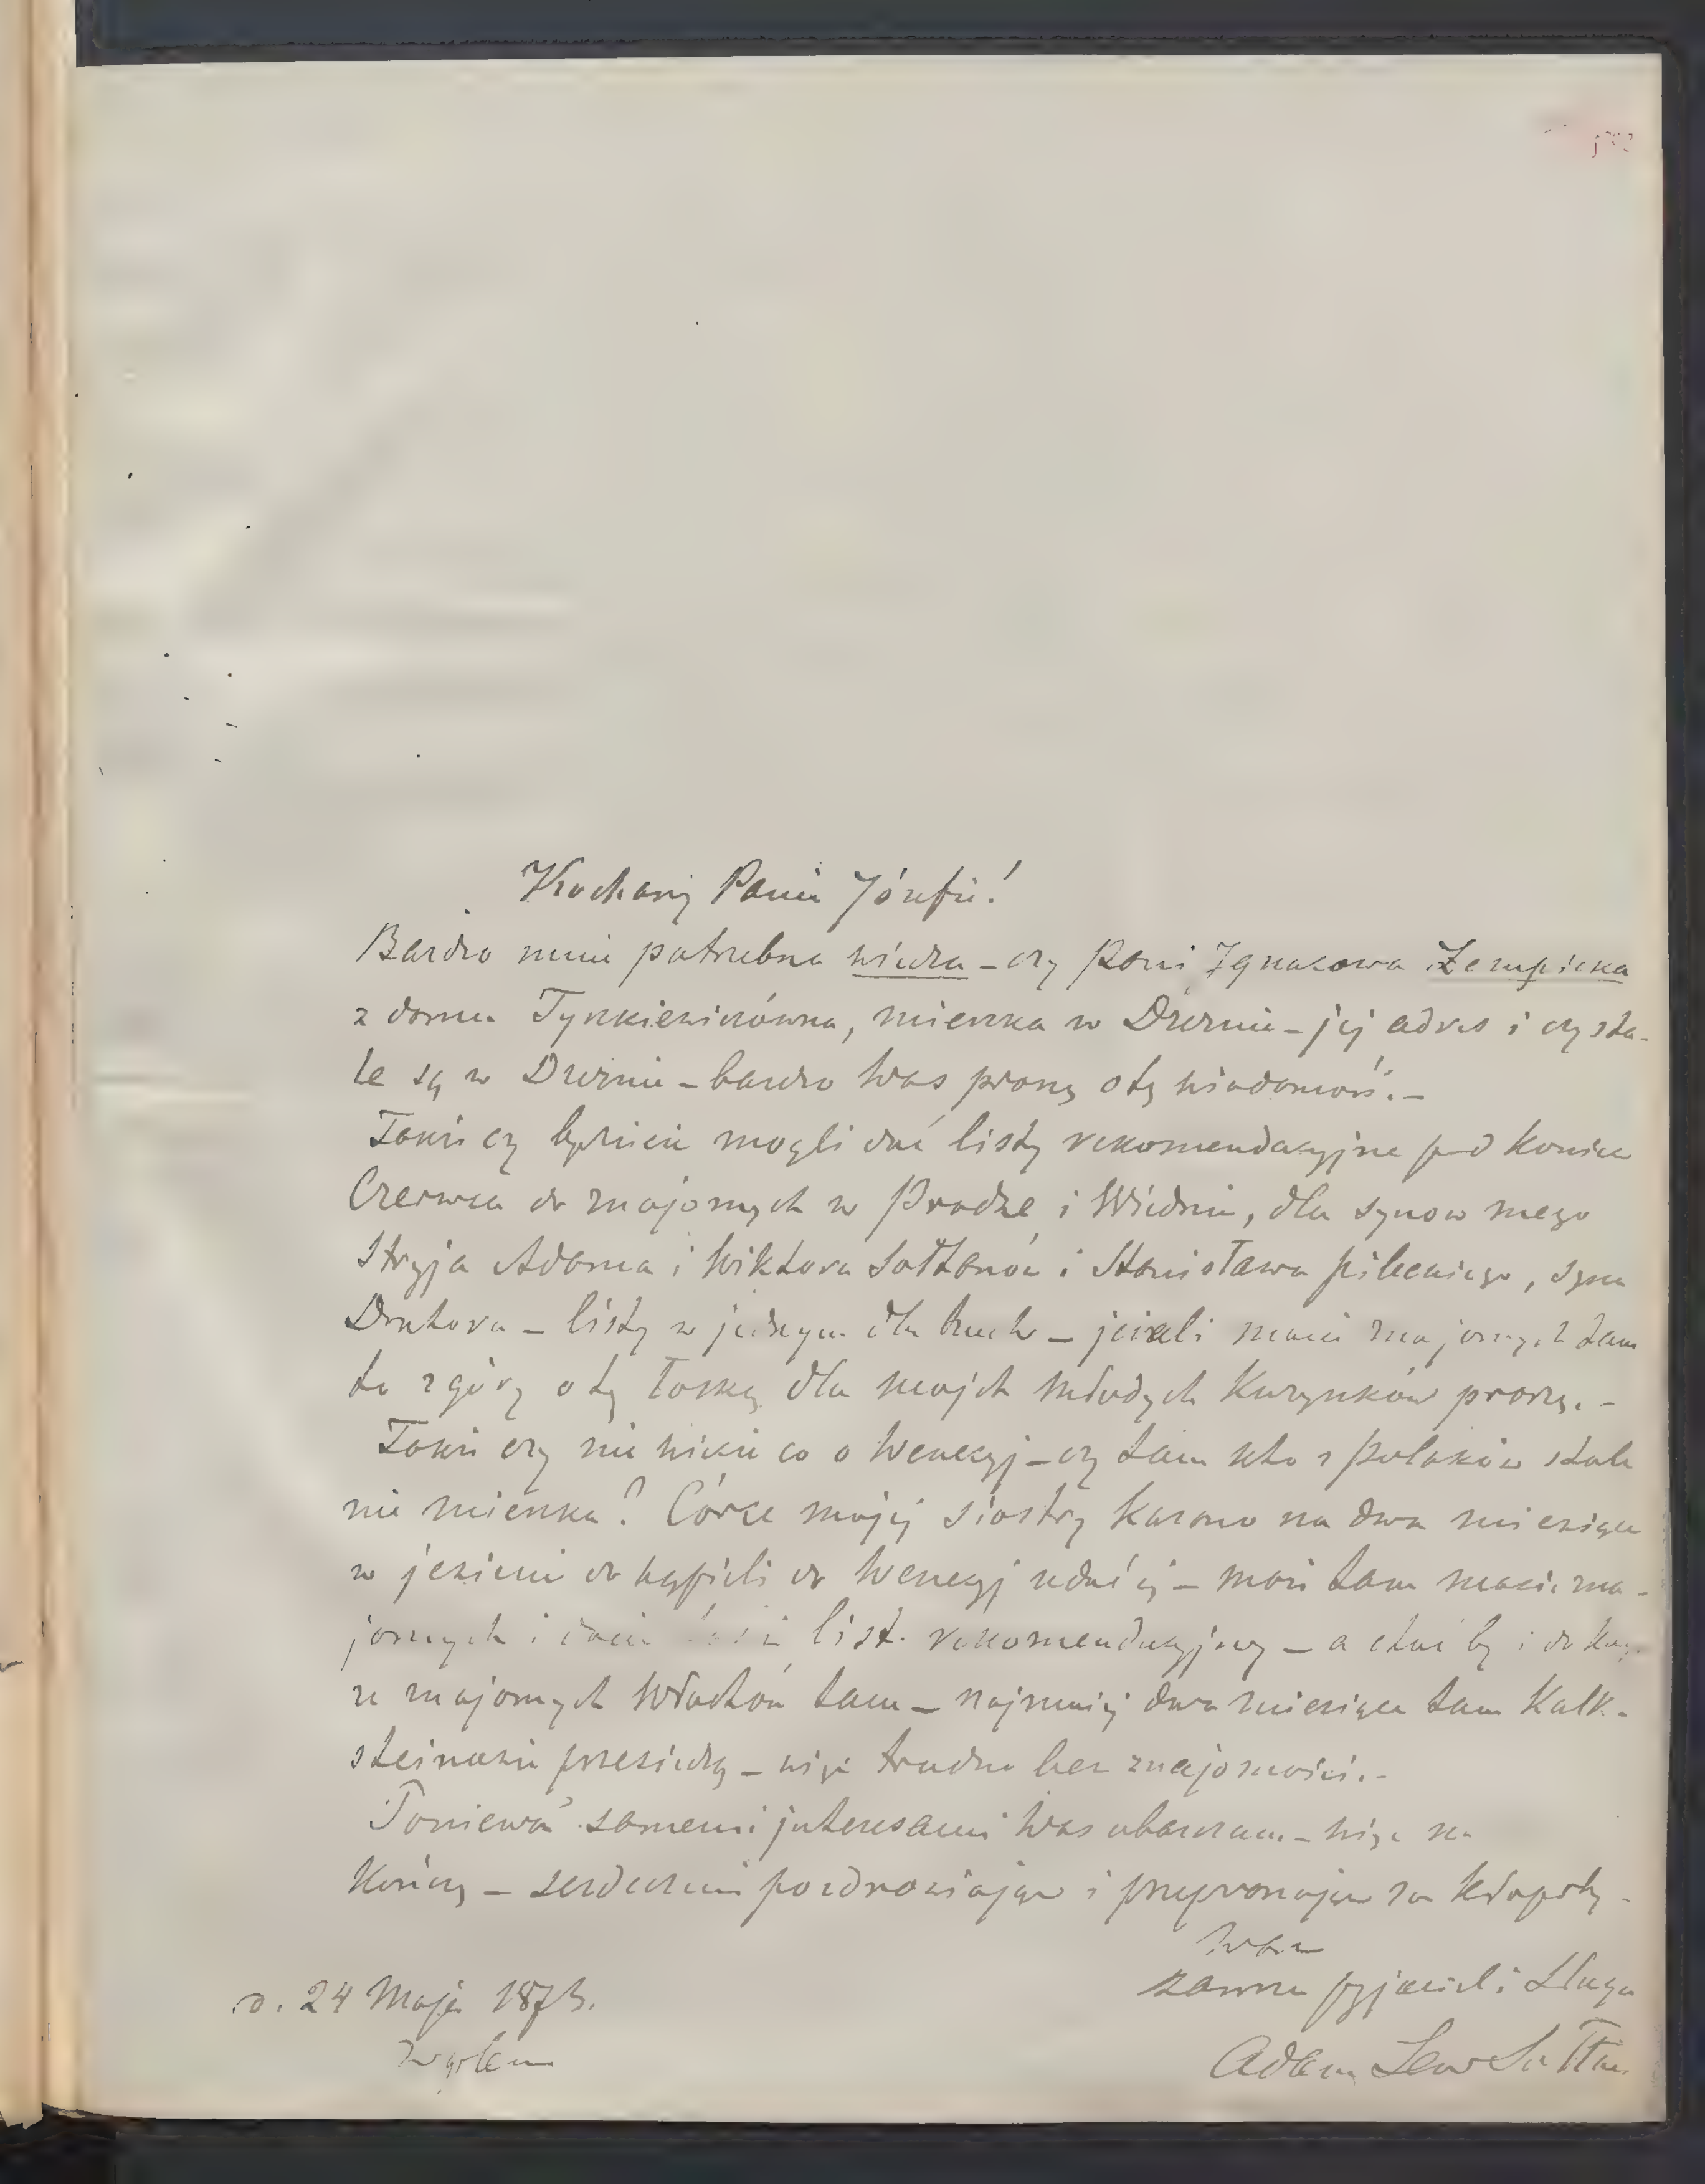 Kochany Panie Józefie!
Bardzo mnie potrzebna wiedza – czy pani Ignacowa Zempicka
z domu Tyszkiewiczówna, mieszka w Dreznie – jej adres i czy sta-
le są w Dreznie – bardzo Was proszę o tę wiadomość. –
Także czy będziecie mogli dać listy rekomendacyjne pod koniec
Czerwca do znajomych w Pradze i Wiedniu, dla synow mego
Stryja Adama i Wiktora Sołtanów i Stanisława pileckiego, syna
– listy w jednym dla trzech – jeżeli macie znajomych tam
to z góry o tę łaskę dla moich młodych Kuzynków proszę. –
Także czy nie wiecie co o Wenecyj – czy tam kto z Polaków stale
nie mieszka? Córce mojej siostry kazano na dwa miesiące
w jesieni do kąpieli do Wenecyj udać się – może tam macie zna-
jomych i list rekomendacyjny – a choć by i do
ze znajomych Włochów tam – najmniej dwa miesiące tam Kalk-
steinowie przesiedzą – więc trudno bez znajomości. –
Ponieważ samemi interesami Was obarczam – więc
kończę – serdecznie pozdrawiając i przepraszając za kłopoty –
zawsze przyjaciel i sługa
d. 24 Maja 1873.
Adam Lew Sołtan